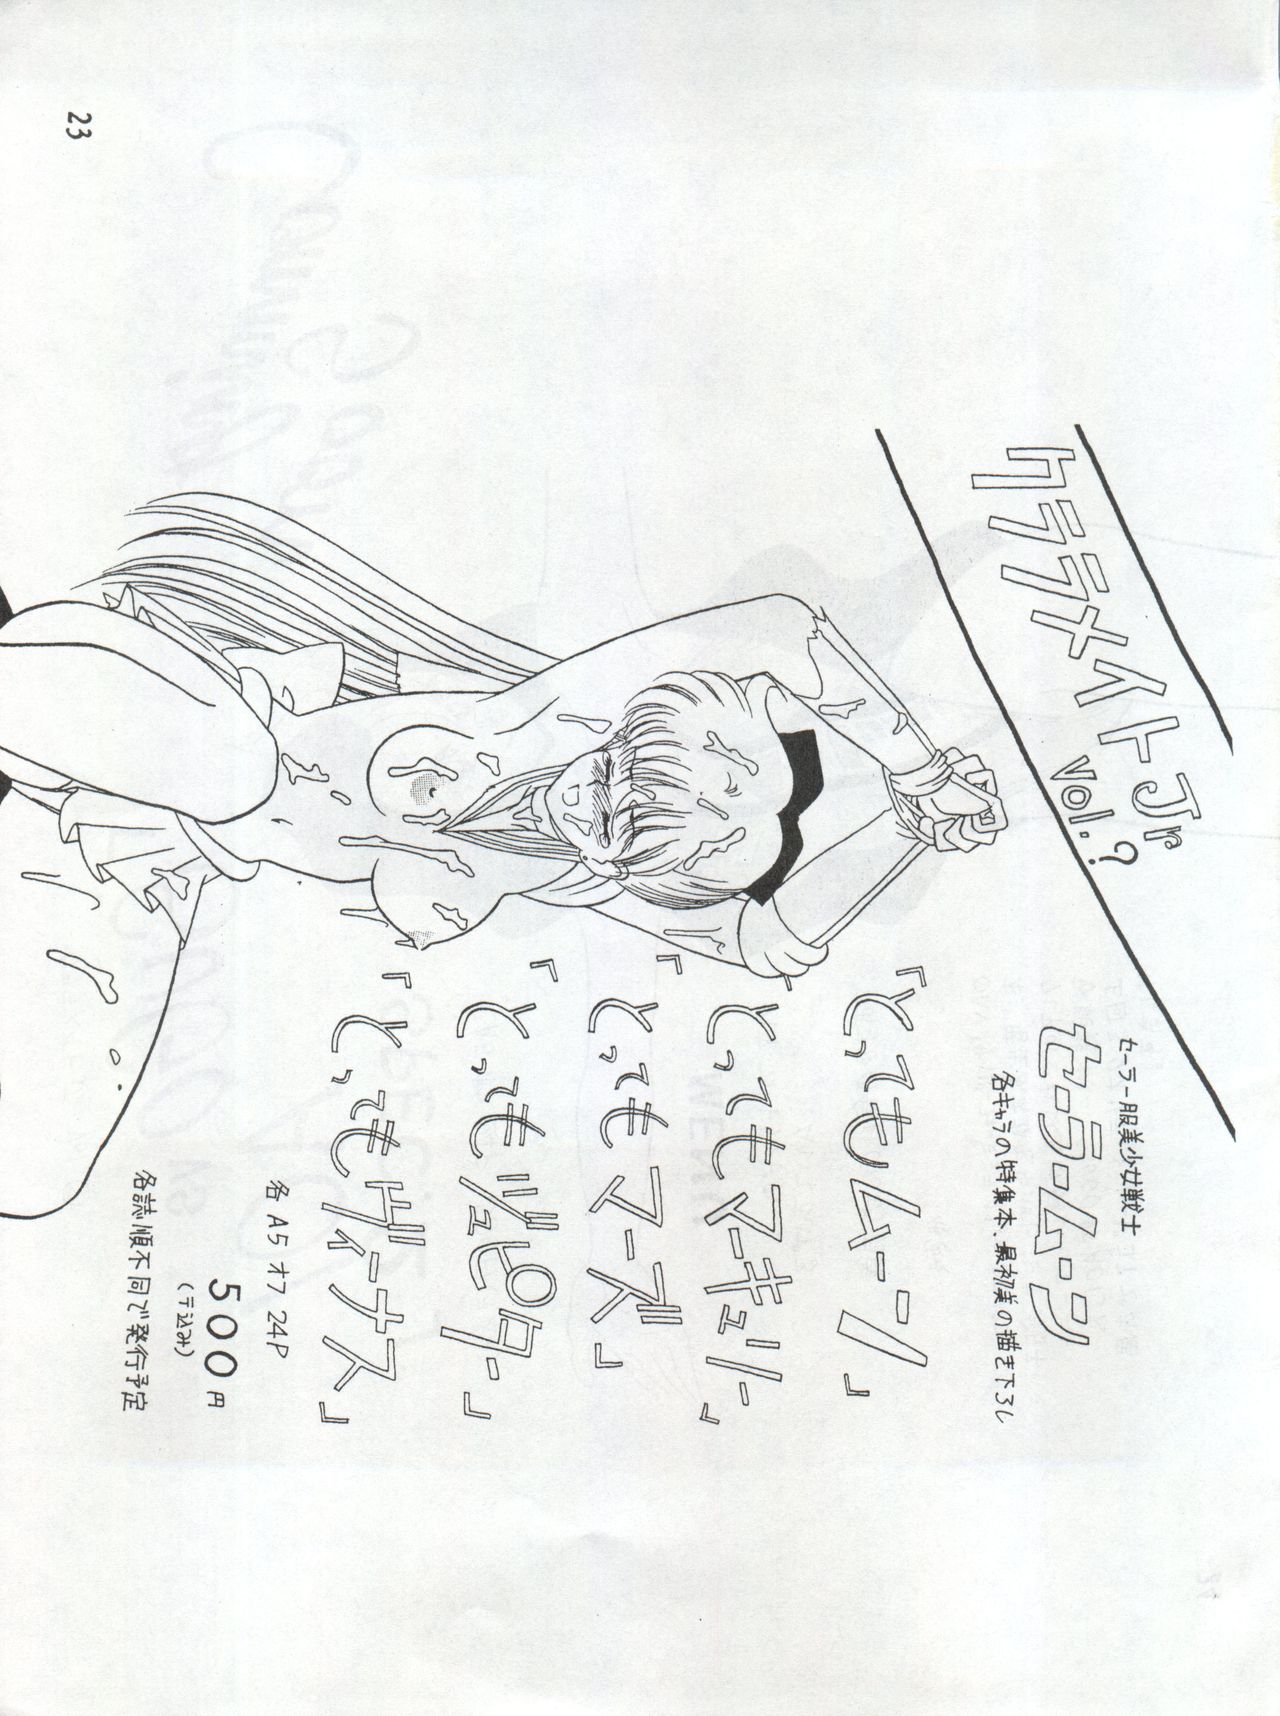 ケララメイトJr
vol.?
セーラー服美少女戦士
セーラームーン
各キャラの特集本、最初美の描き下ろし
「とってもムーン」
「とってもマーキュリー」
「とってもマーズ」
「とってもジュピター」
「とってもヴィーナス」
各A5オフ24P
500円
(〒込み)
各誌順不同で発行予定
23